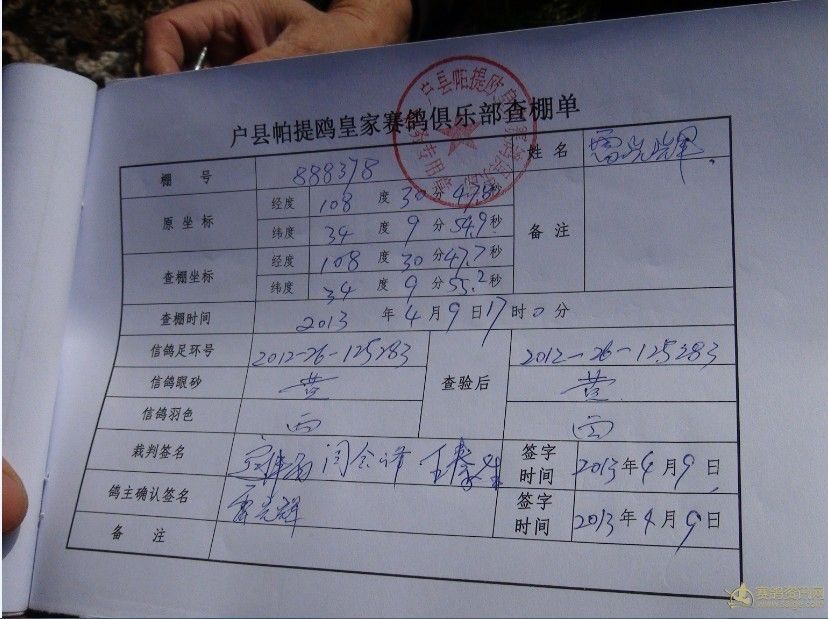 户县帕提鸥皇家赛鸽俱乐部查棚单
棚号 888378 姓名
原坐标 经度 108 度 30 分 47.8 秒 备注
纬度 34 度 9 分 54.9 秒
查棚坐标 经度 108 度 30 分 47.7 秒
纬度 34 度 9 分 55.2 秒
查棚时间 2013 年 4 月 9 日 17 时 0 分
信鸽足环号 2012-26-125283 查验后 2012-26-125283
信鸽眼砂 黄 黄
信鸽羽色
裁判签名 签字时间 2013年4月9日
鸽主确认签名 签字时间 2013年4月9日
备注
赛鸽资讯网